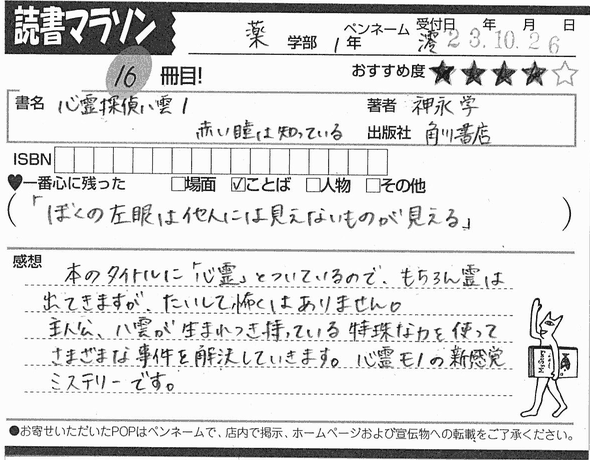 読書マラソン
薬 学部 1年 ペンネーム 澪 受付日 年 月 日
23.10.26
16 冊目! おすすめ度 ★★★★☆
書名 心霊探偵八雲1 著者 神永 学
赤い瞳は知っている 出版社 角川書店
ISBN
♥一番心に残った □場面 ☑ことば □人物 □その他
(「ぼくの左眼は他人には見えないものが見える」)
感想
本のタイトルに「心霊」とついているので、もちろん霊は
出てきますが、たいして怖くはありません。
主人公、八雲が生まれつき持っている特殊な力を使って
さまざまな事件を解決していきます。心霊モノの新感覚
ミステリーです。
●お寄せいただいたPOPはペンネームで、店内で掲示、ホームページおよび宣伝物への転載をご了承ください。